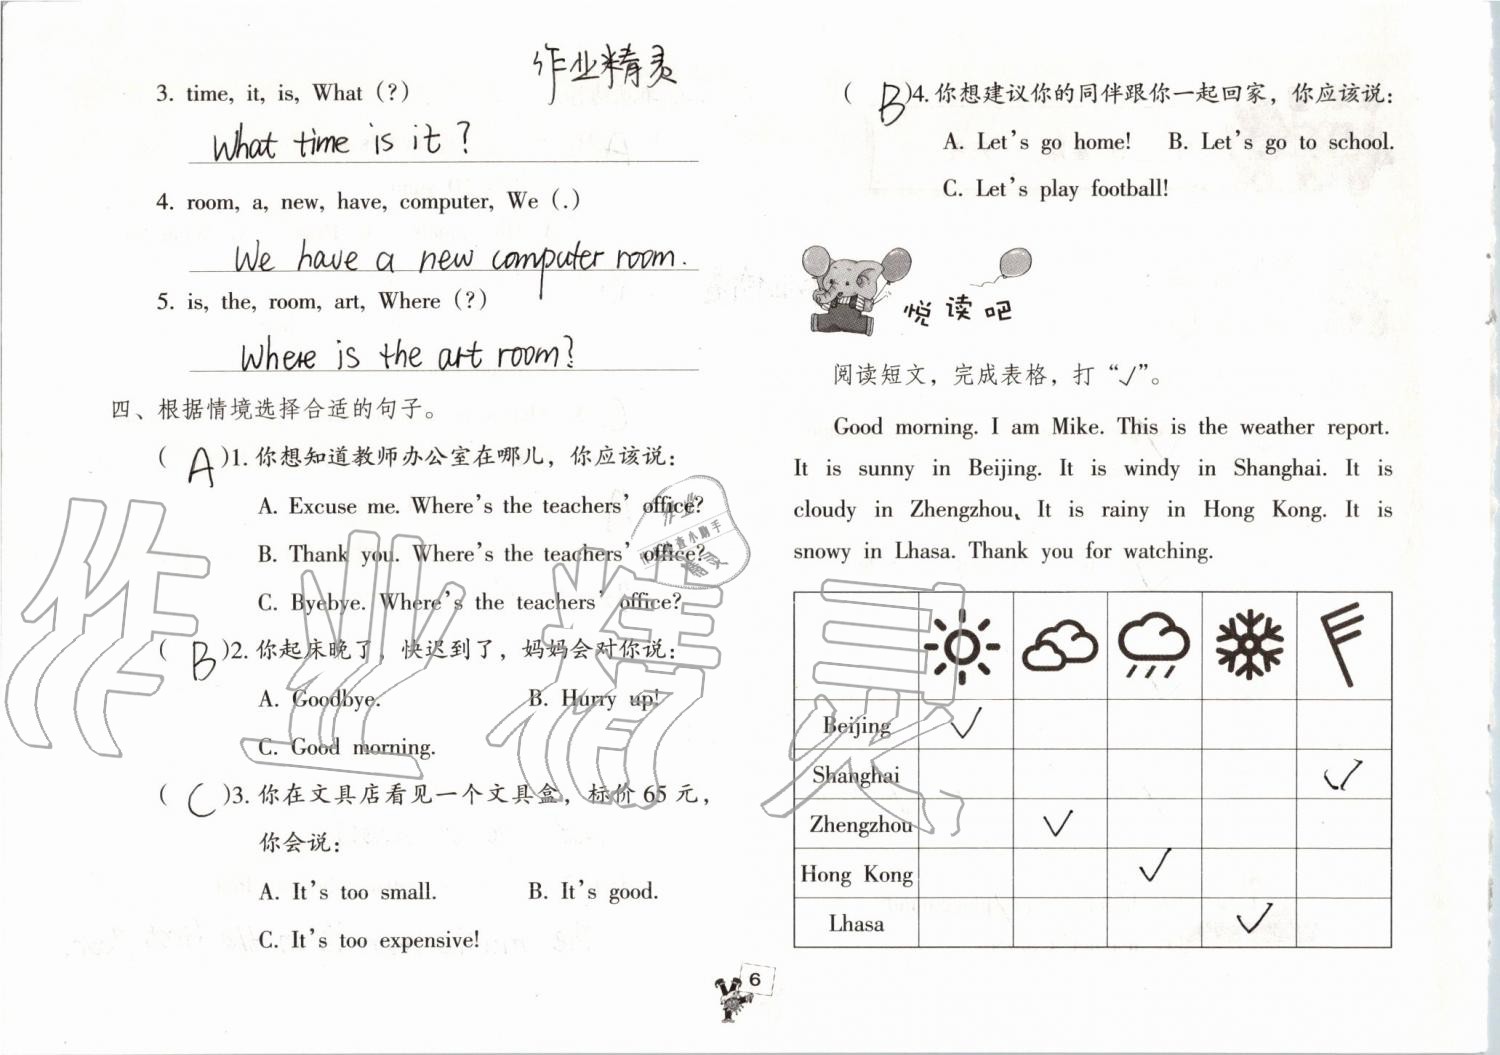 作业精灵
3. time, it, is, What (?)
What time is it?
4. room, a, new, have, computer, We (.)
We have a new computer room.
5. is, the, room, art, Where (?)
Where is the art room?
四、根据情境选择合适的句子。
( A )1. 你想知道教师办公室在哪儿，你应该说：
A. Excuse me. Where's the teachers' office?
B. Thank you. Where's the teachers' office?
C. Byebye. Where's the teachers' office?
( B )2. 你起床晚了，快迟到了，妈妈会对你说：
A. Goodbye. B. Hurry up!
C. Good morning.
( C )3. 你在文具店看见一个文具盒，标价 65 元，
你会说：
A. It's too small. B. It's good.
C. It's too expensive!
( B )4. 你想建议你的同伴跟你一起回家，你应该说：
A. Let's go home! B. Let's go to school.
C. Let's play football!
悦读吧
阅读短文，完成表格，打“✓”。
Good morning. I am Mike. This is the weather report.
It is sunny in Beijing. It is windy in Shanghai. It is
cloudy in Zhengzhou. It is rainy in Hong Kong. It is
snowy in Lhasa. Thank you for watching.
Beijing ✓
Shanghai ✓
Zhengzhou ✓
Hong Kong ✓
Lhasa ✓
6
作业精灵